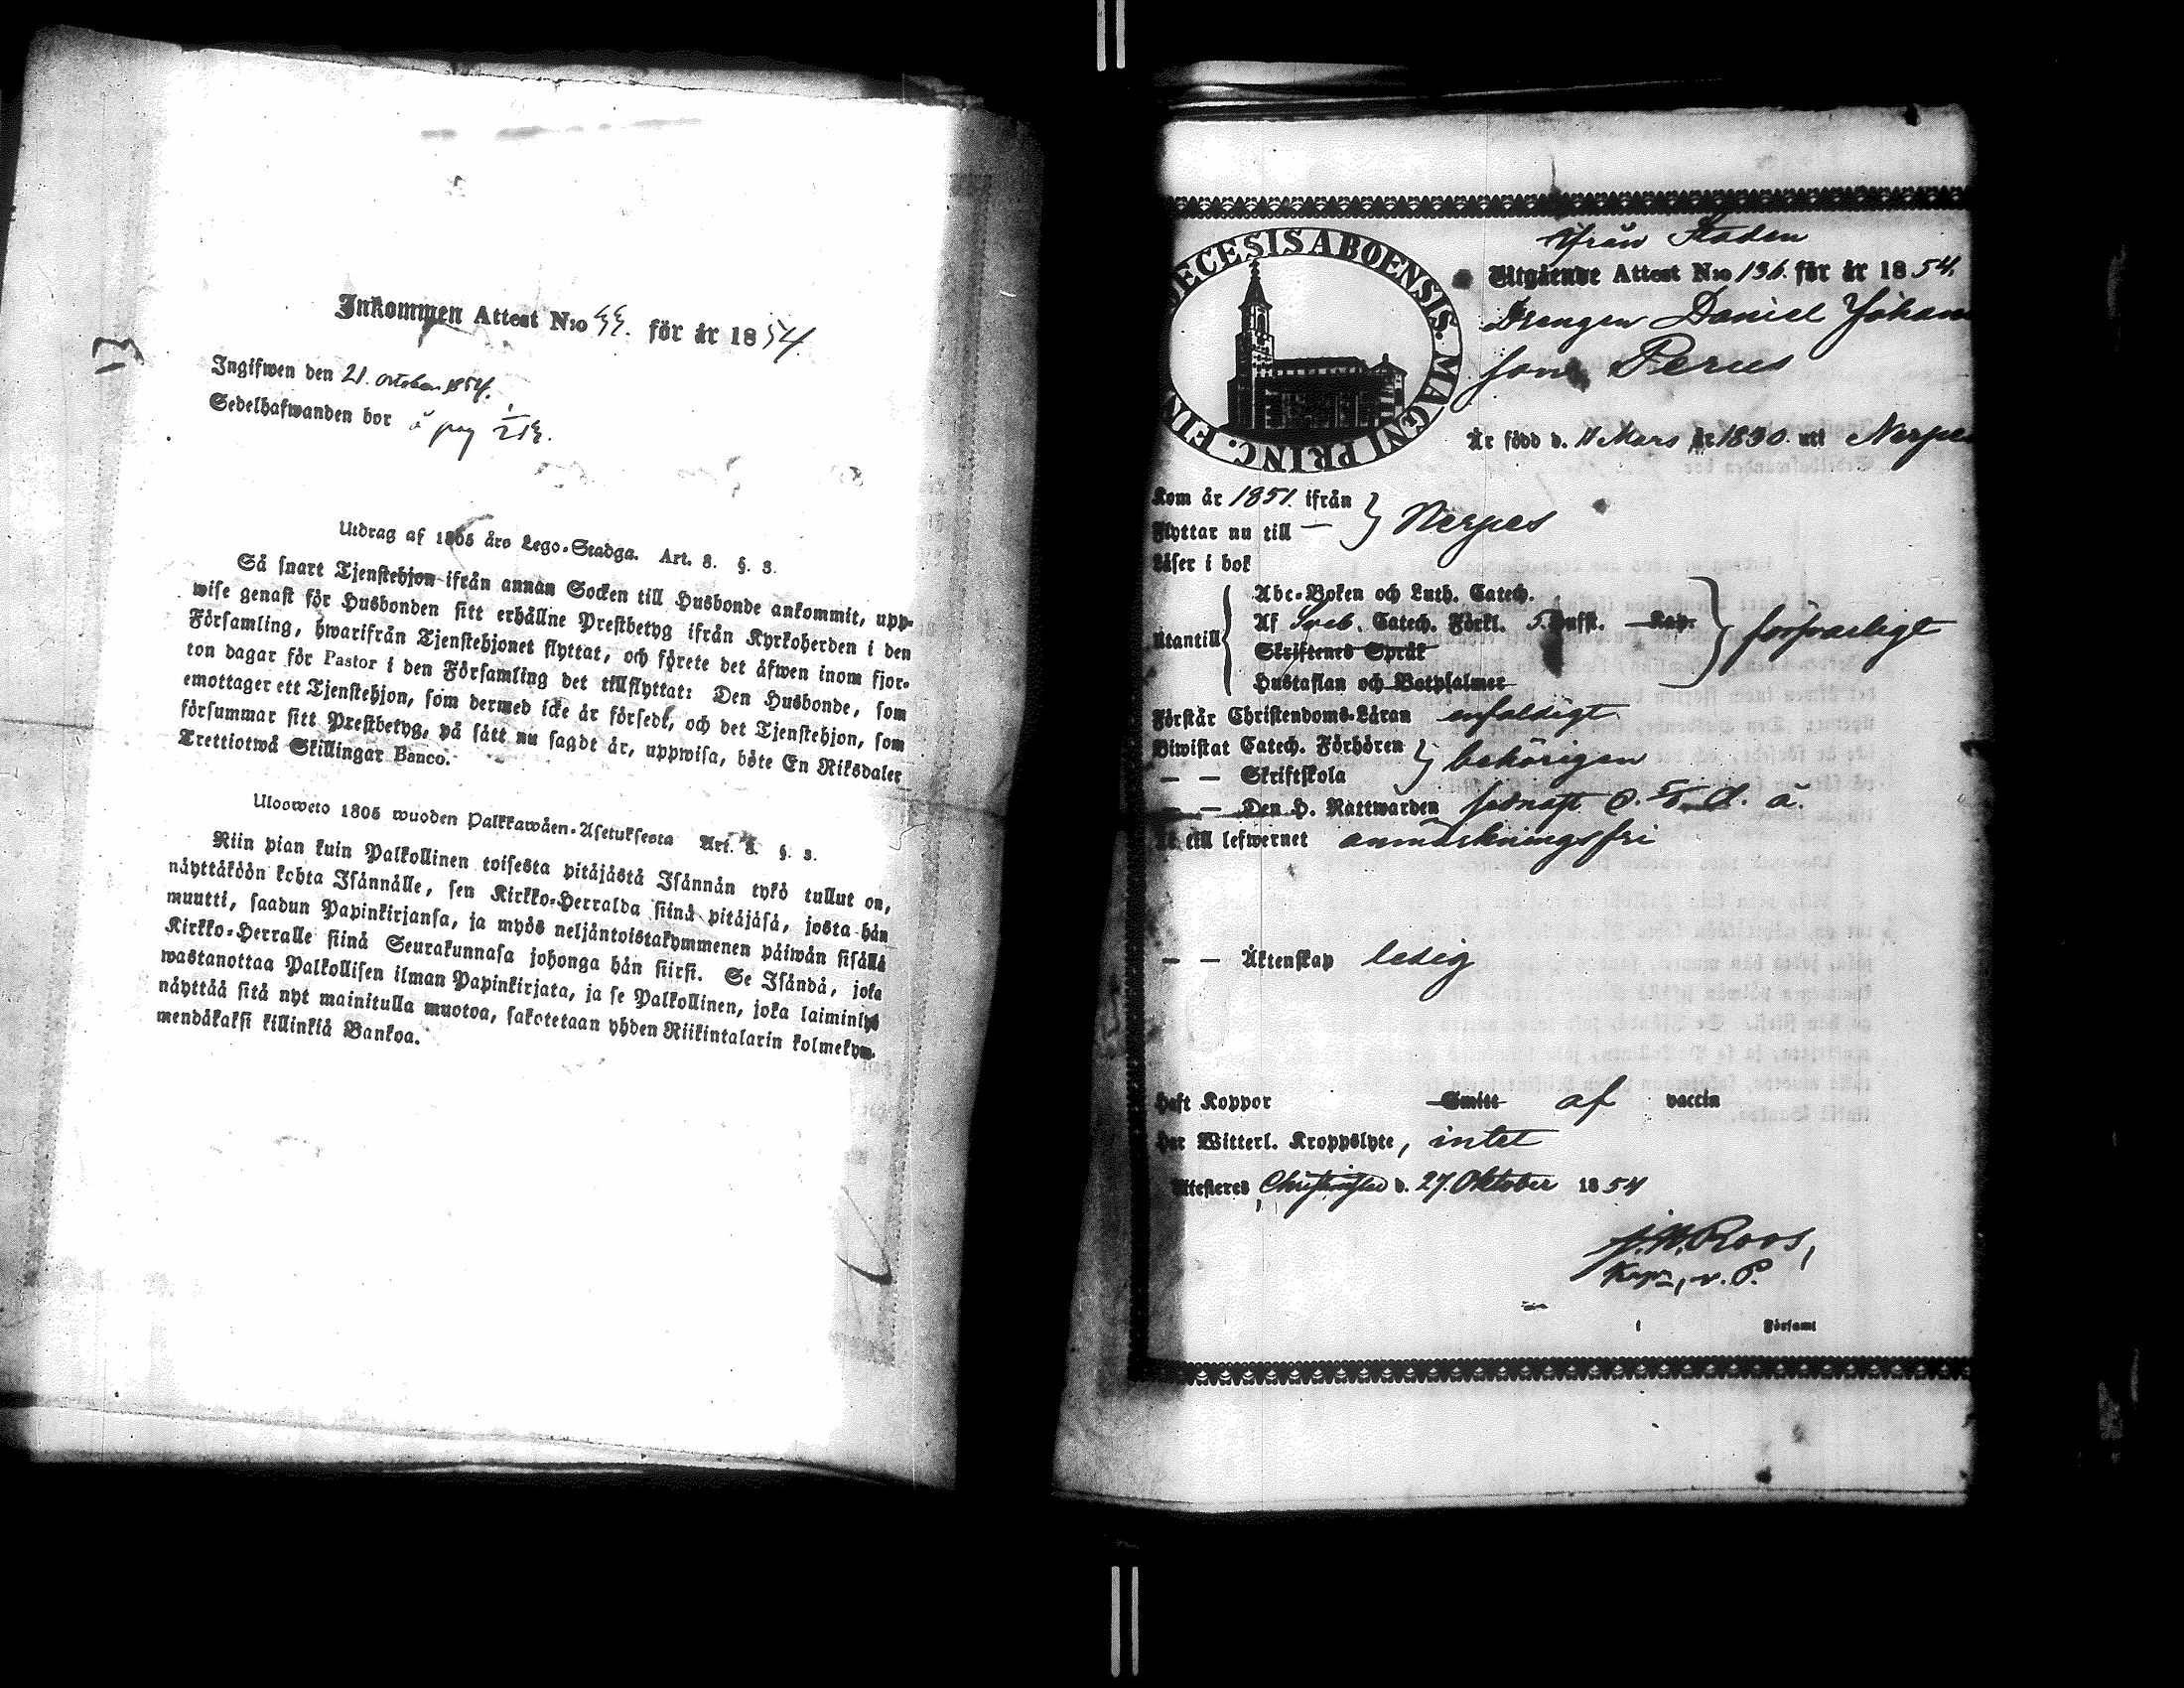 Inkommen Attest N:o för år 1854.
13
Ingifwen den 21. october 1854.
Sedelhafwanden bor å pag
Utdrag af 1805 års Lego-Stadga. Art. 8. §. 3.
Så snart Tjenstehjon ifrån annan Socken till Husbonde ankommit, upp-
wise genast för Husbonden sitt erhållne Prestbetyg ifrån Kyrkoherden i den
Församling, hwarifrån Tjenstehjonet flyttat, och förete det äfwen inom fjor-
ton dagar för Pastor i den Församling det tillflyttat: Den Husbonde, som
emottager ett Tjenstehjon, som dermed icke är försedt, och det Tjenstehjon, som
försummar sitt Prestbetyg, på sätt nu sagdt är, uppwisa, böte En Riksdaler
Trettiotwå Skillingar Banco.
Ulosweto 1805 wuoden Palkkawäen-Asetuksesta Art. 8. §. 3.
Niin pian kuin Palkollinen toisesta pitäjästä Isännän tykö tullut on,
näyttäköön kohta Isännälle, sen Kirkko-Herralda siinä pitäjäsä, josta hän
muutti, saadun Papinkirjansa, ja myös neljäntoistakymmenen päiwän sisällä
Kirkko-Herralle siinä Seurakunnasa johonga hän siirsi. Se Isändä, joka
wastanottaa Palkollisen ilman Papinkirjata, ja se Palkollinen, joka laiminlyö
näyttää sitä nyt mainitulla muotoa, sakotetaan yhden Riikintalarin kolmekym-
mendäkaksi killinkiä Bankoa.
DIECESIS ABOENSIS. MAGNI PRINC. FIN
Ifrån Staden
Utgående Attest N:o 136. för år 1854.
Drengen Daniel Johans
son Perus
Är född d. 11 Mars år 1830. uti Nerpes
Kom år 1851. ifrån
Flyttar nu till — } Nerpes
Läser i bok
Abc-Boken och Luth. Catech.
Utantill Af Sveb. Catech. Förkl. 5. Hufst. Kap. försvarligt
Skriftenes Språk
Hustaflan och Botpsalmer
Förstår Christendoms-Läran enfaldigt
Biwistat Catech. Förhören } behörigen
— — Skriftskola
— — Den H. Nattwarden sednast d. å.
Är till lefwernet anmärkningsfri
— — Äktenskap ledig
Haft Koppor Smitt af vaccin
Har Witterl. Kroppslyte, intet
Attesteras Christinestad d. 27. Oktober 1854
Roos,
Kapn, v. P.
i Församl